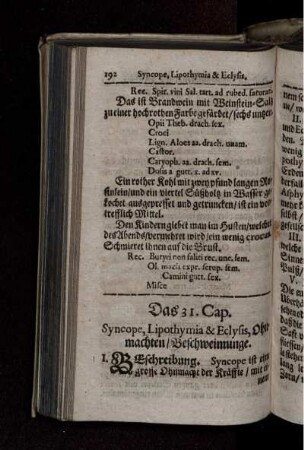 192 Syncope, Lipothymia & Eclysis.
Rec. Spir. vini Sal. tart. ad rubed. saturat.
Das ist Brandwein mit Weinstein-Saltz
zu einer hochrothen Farbe gefärbet/
Opii Theb. drach. sex.
Croci
Lign. Aloes aa. drach. unam.
Castor.
Caryoph. aa. drach. sem.
Dosis a gutt. x. ad xv.
Ein rother Kohl mit zwey pfund langen
und ein viertel Süßholtz in Wasser ge-
kochet ausgepresset und getruncken/ ist ein vor-
treffliches Mittel.
Den Kindern giebt man im Husten/ welcher
des Abends/ vermehret wird/ ein wenig crocus
Schmieret ihnen auf die Brust.
Rec. Butyri non saliti rec. unc. sem.
Ol. macis expr. scrup. sem.
gutt. sex.
Misce
Das 31. Cap.
Syncope, Lipothymia & Eclysis, Ohn-
machten/ Beschweimunge.
1. BEschreibung. Syncope ist eine
grosse Ohnmacht der Kräffte/ mit